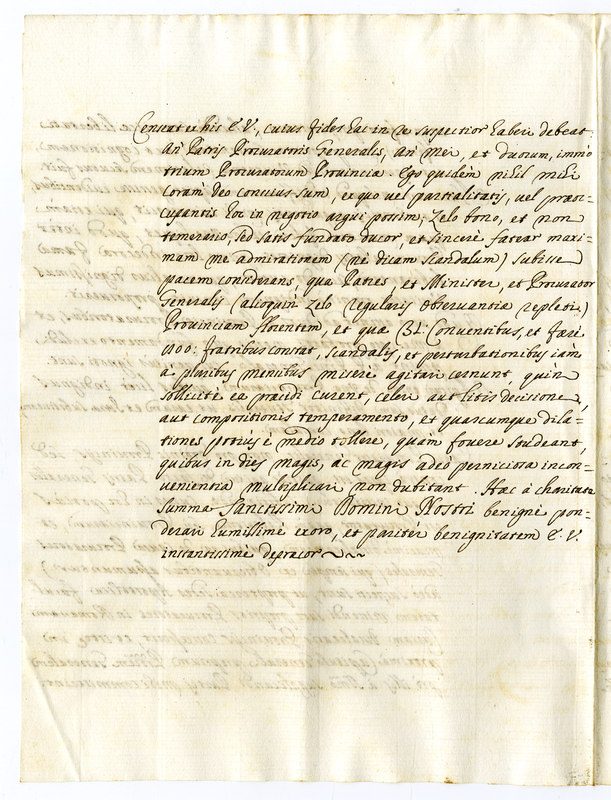 Censeat ex his E.V., cuius fides hac in re suspectior haberi debeat,
An Patris Procuratoris Generalis, An Mei, et duorum, immò
trium Procuratorum Provinciæ. Ego quidem nihil mihi
coram Deo conscius sum, ex quo vel partialitatis, vel præoc=
cupantis hoc in negotio argui possim; Zelo bono, et non
temerario, sed satis fundato ducor, et sincerè fatear maxi=
mam me admirationem (ne dicam scandalum) subisse
pacem considerans, qua Patres, et Minister, et Procurator
Generalis (alioquin Zelo Regularis Observantiæ repleti)
Provinciam florentem, et quæ 82: Conventibus, et ferè
1100: fratribus constat, scandalis, et perturbationibus iam
à pluribus mensibus miserè agitari cernunt, quin
sollicitè ea præcidi curent, celeri aut litis decisione,
aut compositionis temperamento, et quascumque dila=
tiones potius è medio tollere, quam fovere studeant,
quibus in dies magis, àc magis adeò perniciosa incon=
venientia multiplicari non dubitant. Hæc à charitate
summa Sanctissimi Domini Nostri benignè pon=
derari humillimè exoro, et pariter benignitatem E.V.
instantissimè deprecor